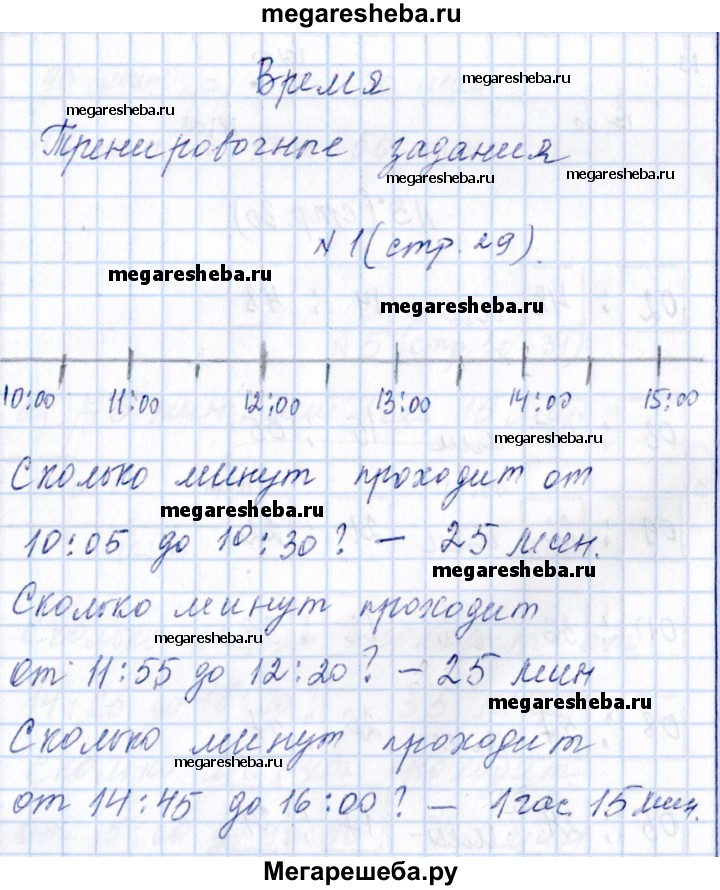 megaresheba.ru
Время
megaresheba.ru
megaresheba.ru
Тренировочные задания
megaresheba.ru
megaresheba.ru
№ 1 (стр. 29).
megaresheba.ru
megaresheba.ru
10:00 11:00 12:00 13:00 14:00 15:00
megaresheba.ru
Сколько минут проходит от
megaresheba.ru
10:05 до 10:30? – 25 мин.
megaresheba.ru
Сколько минут проходит
megaresheba.ru
от 11:55 до 12:20? – 25 мин
megaresheba.ru
Сколько минут проходит
megaresheba.ru
от 14:45 до 16:00? – 1 час 15 мин.
Мегарешеба.ру